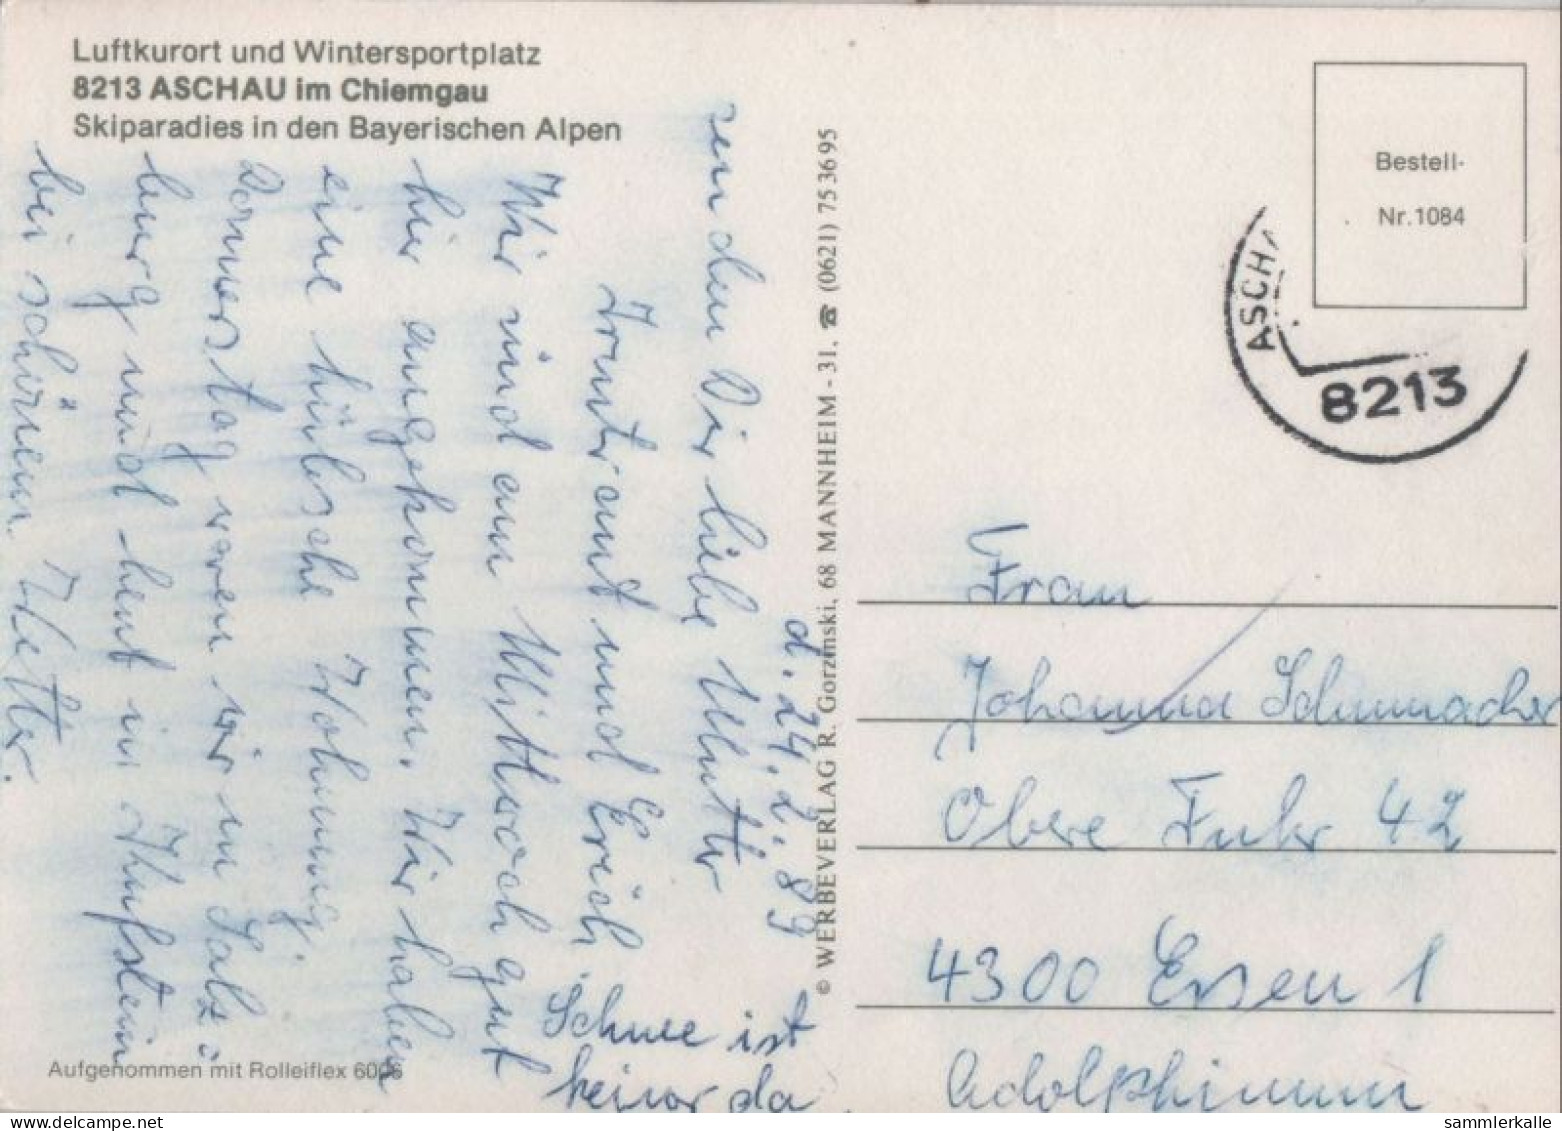 Luftkurort und Wintersportplatz
8213 ASCHAU im Chiemgau
Skiparadies in den Bayerischen Alpen
d. 24.2.89
Wir sind am Mittwoch gut
hier angekommen. Wir haben
eine hübsche Wohnung.
Donnerstag waren wir in Salz=
burg und heut in Kufstein
bei schönem Wetter.
Schnee ist
keiner da
senden Dir liebe Mutter
Irmtraut und Erich
Aufgenommen mit Rolleiflex 6006
© WERBEVERLAG R. Gorzinski, 68 MANNHEIM - 31, ☎ (0621) 753695
Bestell-
Nr. 1084
ASCHA
8213
Frau
Johanna Schumacher
Obere Fuhr 42
4300 Essen 1
Adolphinum
www.delcampe.net
sammlerkalle